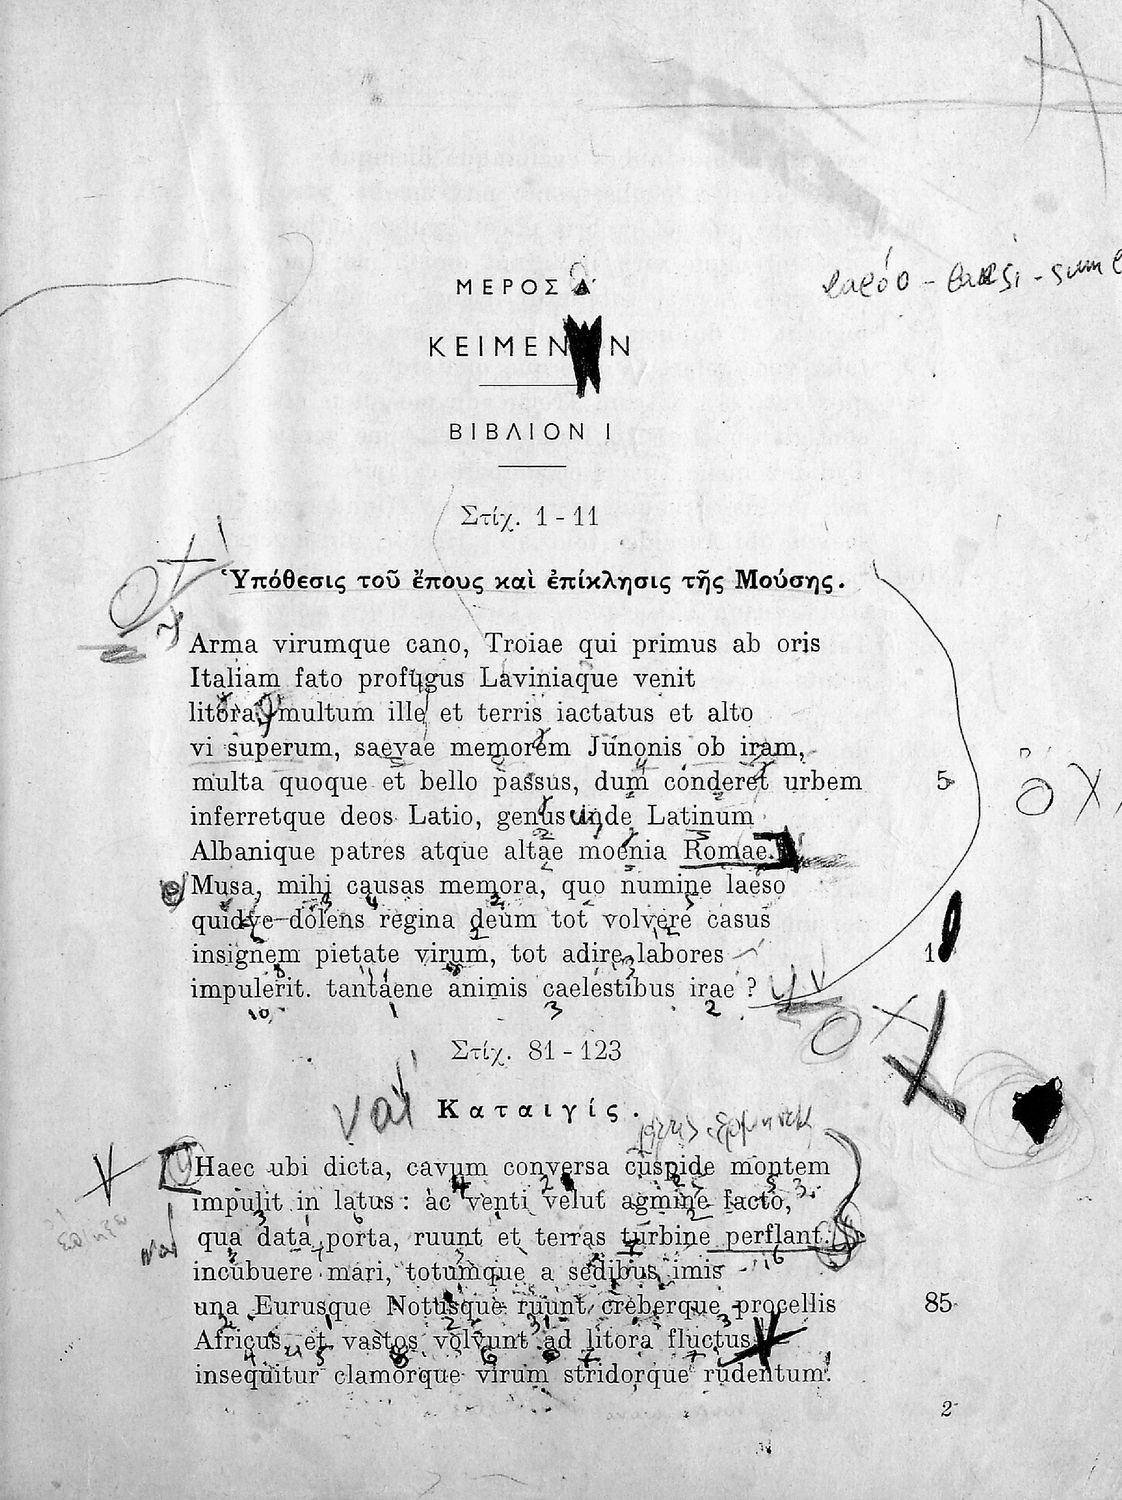 ΜΕΡΟΣ Α΄
ΚΕΙΜΕΝΟΝ
ΒΙΒΛΙΟΝ Ι
Στίχ. 1 - 11
Ὑπόθεσις τοῦ ἔπους καὶ ἐπίκλησις τῆς Μούσης.
Arma virumque cano, Troiae qui primus ab oris
Italiam fato profugus Laviniaque venit
litora, multum ille et terris iactatus et alto
vi superum, saevae memorem Junonis ob iram,
multa quoque et bello passus, dum conderet urbem 5
inferretque deos Latio, genus unde Latinum
Albanique patres atque altae moenia Romae.
όχι
Musa, mihi causas memora, quo numine laeso
quidve dolens regina deum tot volvere casus
insignem pietate virum, tot adire labores 10
impulerit. tantaene animis caelestibus irae ?
Στίχ. 81 - 123
ναί
Καταιγίς.
Haec ubi dicta, cavum conversa cuspide montem
impulit in latus : ac venti velut agmine facto,
qua data porta, ruunt et terras turbine perflant.
incubuere mari, totumque a sedibus imis
una Eurusque Notusque ruunt creberque procellis 85
Africus, et vastos volvunt ad litora fluctus
insequitur clamorque virum stridorque rudentum.
2